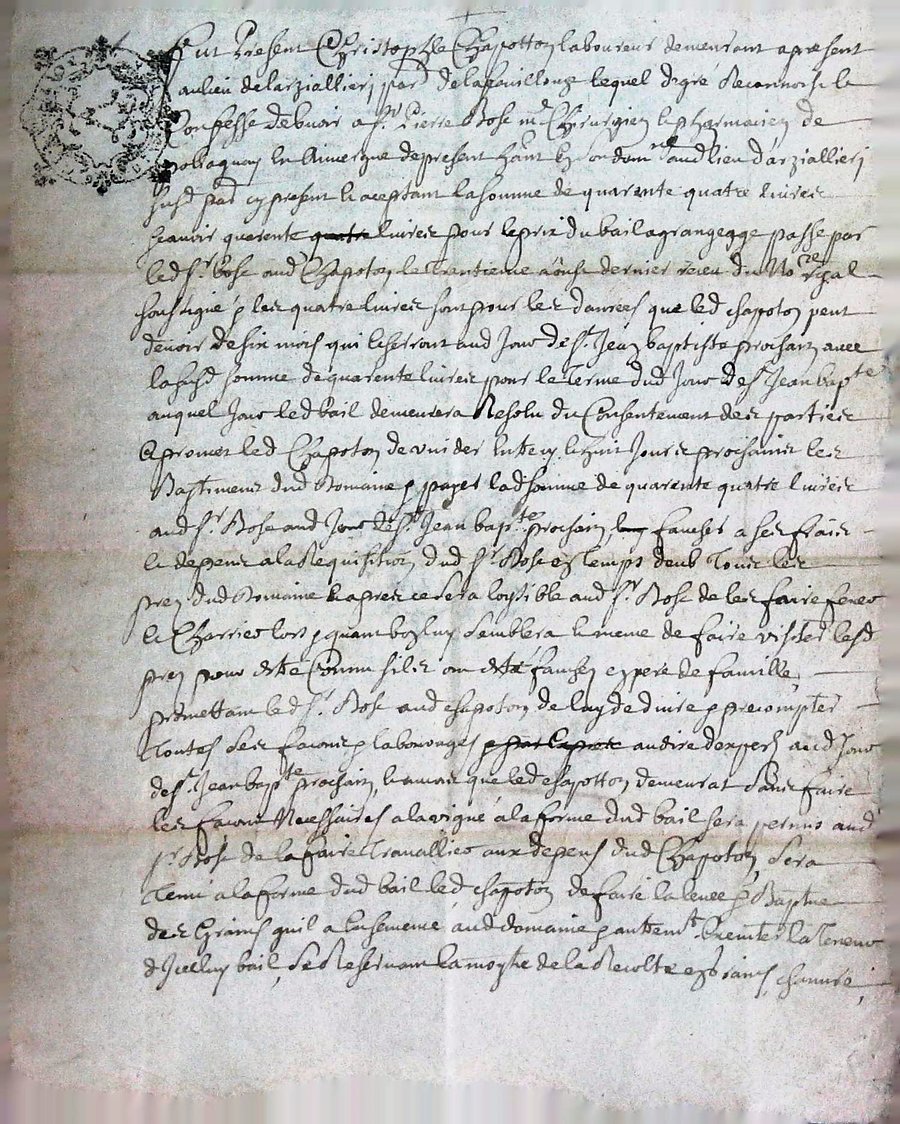 Fut Present Christophle Chapotton laboureur demeurant apresent
au lieu de larziallierj parr de lafouillouze lequel degré Reconnoist le
Confesse debuoir a sr Pierre Bose md Chirurgien le pharmacien de
en Auvergne depresent son dom aud lieu d'arziallierj
susd parr cy present le aceptant la somme de quarente quatre liures
scauoir quarente quatre liures pour le prix du bail a grangegge passe par
led sr bose aud Chapoton le trantieme aoust dernier receu du Nore royal
soussigné p les quatre liures sont pour les danrées que led chapoton peut
deuoir de six mois qui escherront aud Jour de st Jean baptiste prochain auec
la susd somme de quarente liures pour le terme dud Jour de st Jean bapte
auquel Jour led bail demeurera Resolu du Consentement des parties
le promet led Chapoton de vuider huit Jours prochains les
Bastimens dud Domaine p payer lad somme de quarente quatre liures
aud sr Bose aud Jour de st Jean bapte prochain, faucher a ses frais
le depens a la Requisition dud sr Bose en temps deub tous les
prez dud Domaine le apres ce sera loysible aud sr Bose de les faire fener
le Charrier lors p quant bon luy semblera le meme de faire visiter lesd
prez pour estre Connu sils ont esté fauchez en pere de famille,
promettant led sr Bose aud chapoton de luy deduire p precompter
toutes ses facons p labourages audire dexpers aud Jour
de st Jean bapte prochain, le a que led chapotton demeurat sans faire
les facons Necessaires a la vigne a la forme dud bail sera permis aud
sr Bose de la faire trauallier aux depens dud Chapoton, sera
tenu a la forme dud bail led chapoton de faire la leuée p
des Grains quil a ensemencé aud domaine p autremt la teneur
d'Jcelluy bail, se Reseruant la moytié de la Recolte en grains, chanure,